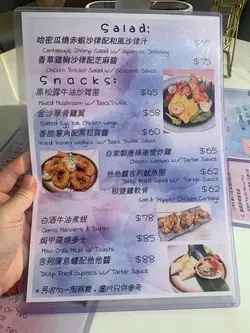 Salad:
哈密瓜燒赤蝦沙律配和風沙律汁 $65
Cantaloupe Shrimp Salad w/ Japanese Dressing
香草雞胸沙律配芝麻醬 $75
Chicken Breast Salad w/ Sesame Sauce
Snacks:
黑松露牛油炒雜菌 $45
Mixed Mushroom w/ Black Truffle
金沙單骨雞翼 $58
Salted Egg Yolk Chicken Wings
香脆薯角配黑松露醬 $60
Fried Potato Wedges w/ Black Truffle
自家製唐揚南蠻炒雞 $65
Chicken Nanban w/ Tartar Sauce
他他醬吉列魷魚圈 $62
Deep Fried Squid w/ Tartar Sauce
椒鹽雞軟骨 $62
Salt & Pepper Chicken Cartilage
白酒牛油煮蜆 $78
Clams Mariniere & Butter
焗甲羅燒多士 $85
Miso Crab Meat w/ Toasts
吉列廣島蠔配他他醬 $88
Deep Fried Oysters w/ Tartar Sauce
*另收加一服務費，圖片只供參考